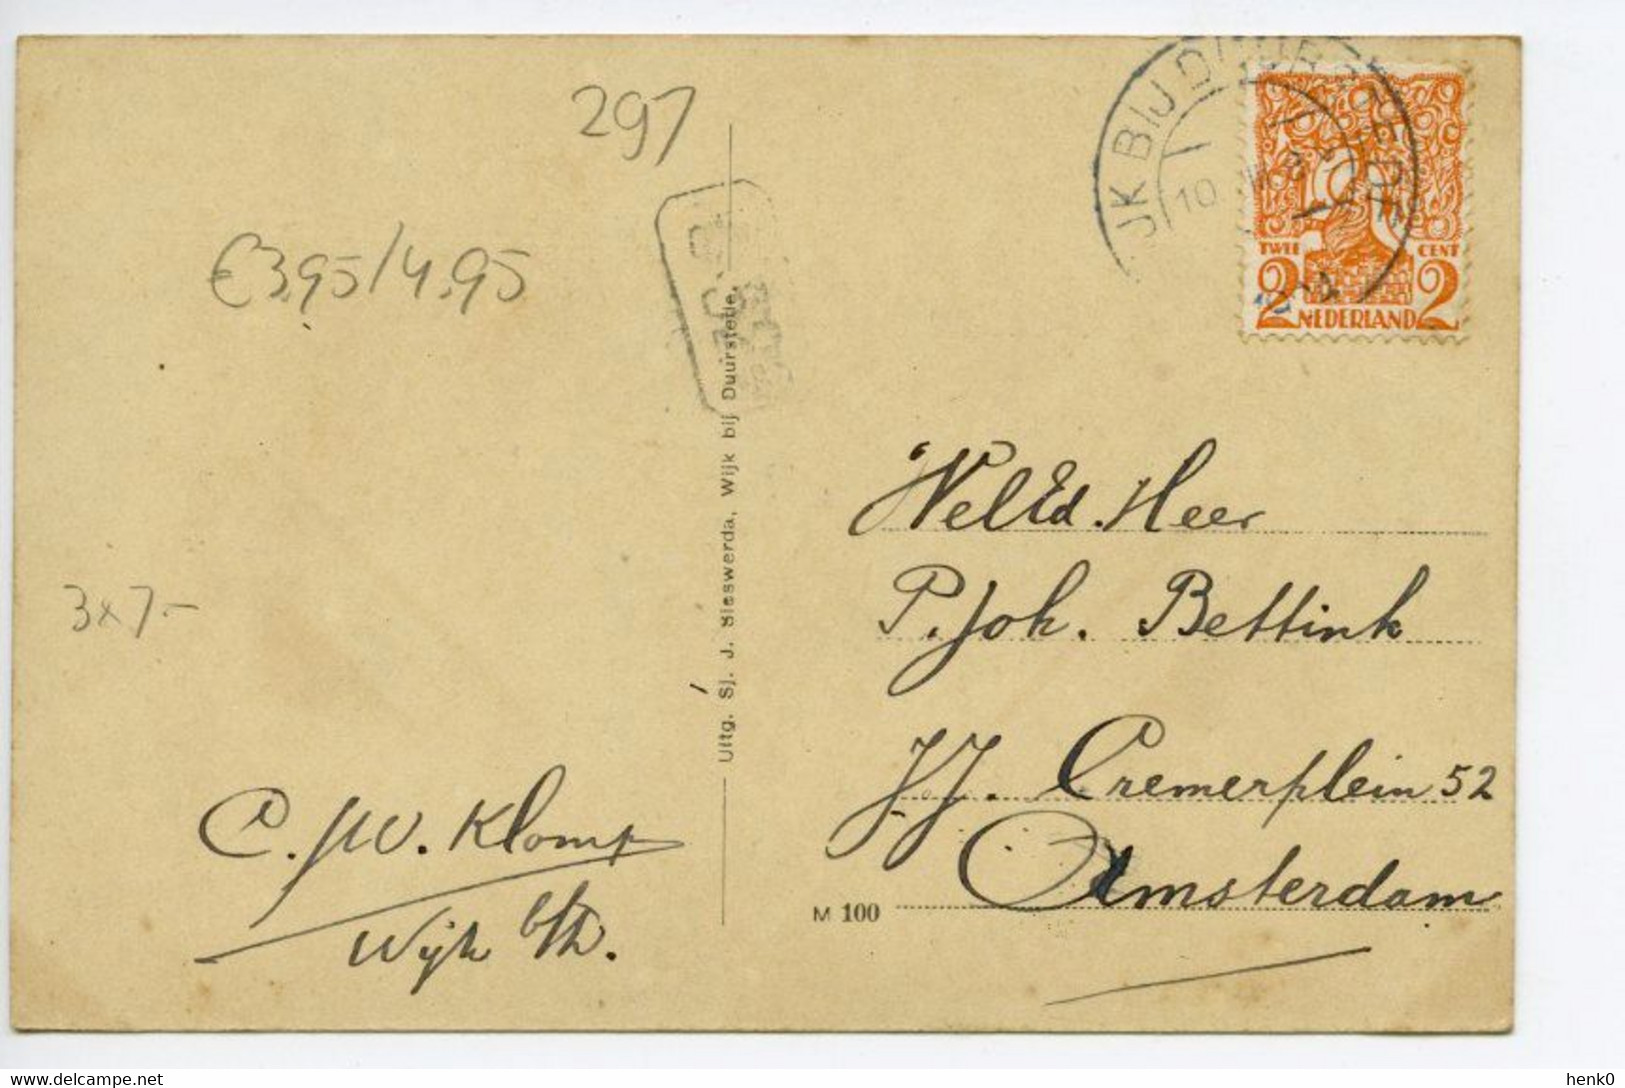 297
€3,95/4,95
3x7-
Uitg. Sj. J. Sieswerda, Wijk bij Duurstede.
BIJ
10
TWEE CENT
2 2
NEDERLAND
WelEd. Heer
P. Joh. Bettink
J.J. Cremerplein 52
Amsterdam
M 100
C. J.W. Klomp
Wijk b/D.
henk0